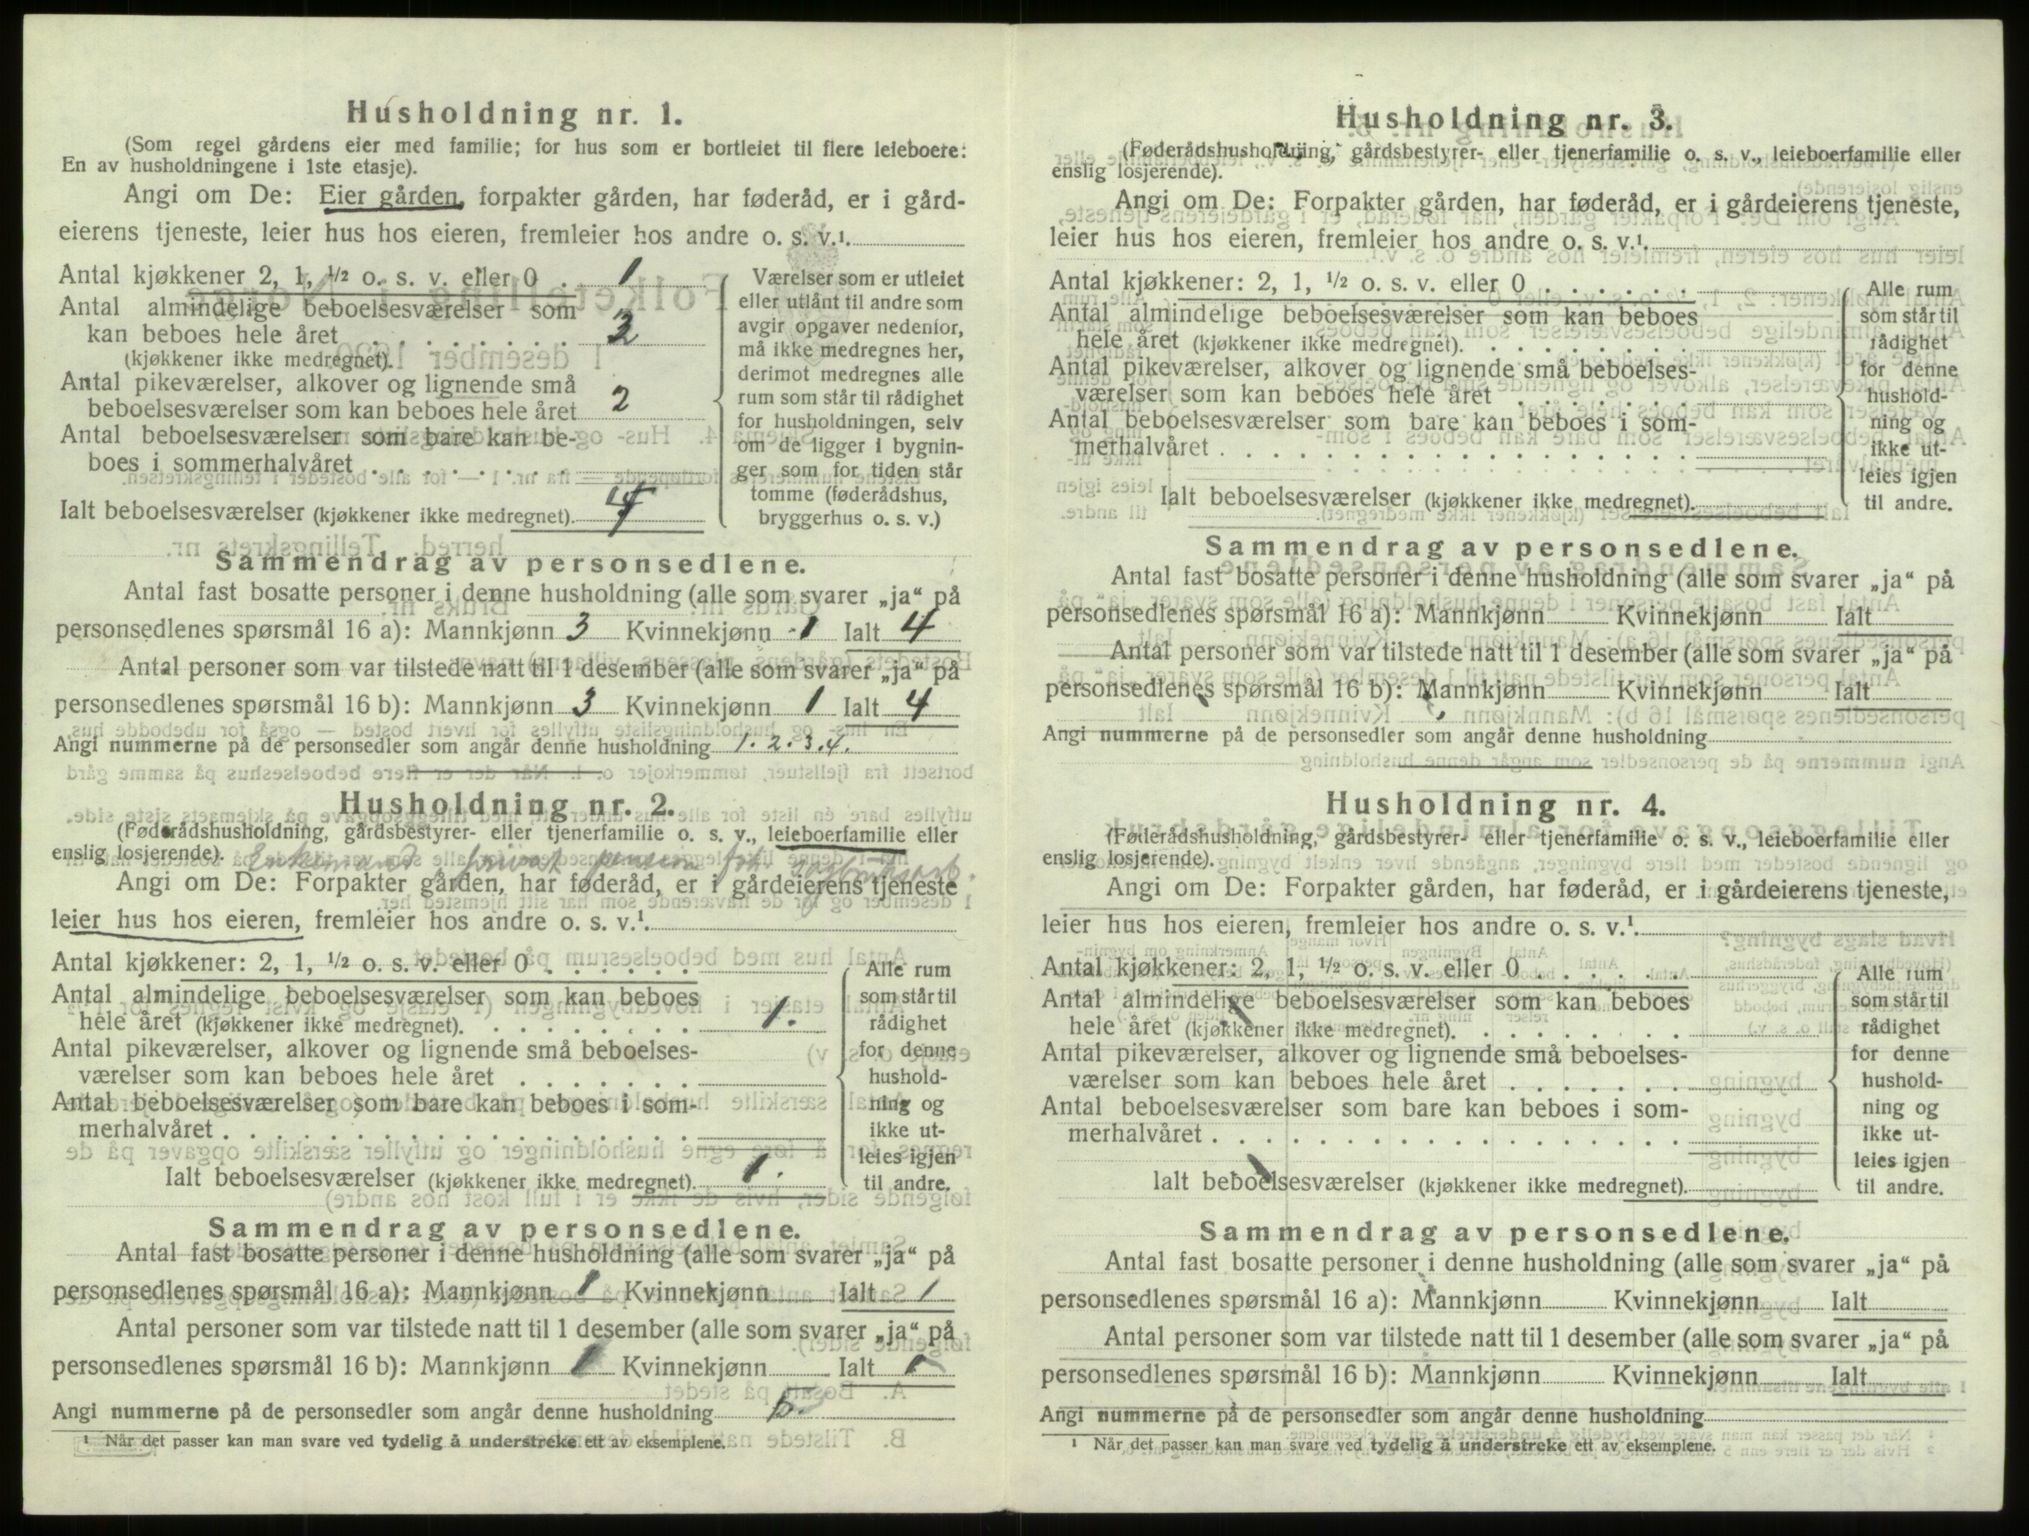 Husholdning nr. 1.
(Som regel gårdens eier med familie; for hus som er bortleiet til flere leieboere:
En av husholdningene i 1ste etasje).
Angi om De: Eier gården, forpakter gården, har føderåd, er i gård-
eierens tjeneste, leier hus hos eieren, fremleier hos andre o. s. v.¹.
Antal kjøkkener 2, 1, ½ o. s. v. eller 0 . 1
Antal almindelige beboelsesværelser som
kan beboes hele året . . . . . . . .
(kjøkkener ikke medregnet).
Antal pikeværelser, alkover og lignende små
beboelsesværelser som kan beboes hele året 2
Antal beboelsesværelser som bare kan be-
boes i sommerhalvåret . . . . . . .
Ialt beboelsesværelser (kjøkkener ikke medregnet).
Værelser som er utleiet
eller utlånt til andre som
avgir opgaver nedenfor,
må ikke medregnes her,
derimot medregnes alle
rum som står til rådighet
for husholdningen, selv
om de ligger i bygnin-
ger som for tiden står
tomme (føderådshus,
bryggerhus o. s. v.)
Sammendrag av personsedlene.
Antal fast bosatte personer i denne husholdning (alle som svarer „ja“ på
personsedlenes spørsmål 16 a): Mannkjønn 3 Kvinnekjønn 1 Ialt 4
Antal personer som var tilstede natt til 1 desember (alle som svarer „ja“ på
personsedlenes spørsmål 16 b): Mannkjønn 3 Kvinnekjønn 1 Ialt 4
Angi nummerne på de personsedler som angår denne husholdning 1. 2. 3. 4.
Husholdning nr. 2.
(Føderådshusholdning, gårdsbestyrer- eller tjenerfamilie o. s. v., leieboerfamilie eller
enslig losjerende). Enkemand, privat pension
Angi om De: Forpakter gården, har føderåd, er i gårdeierens tjeneste
leier hus hos eieren, fremleier hos andre o. s. v.¹.
Antal kjøkkener: 2, 1, ½ o. s. v. eller 0 . . . . . .
Antal almindelige beboelsesværelser som kan beboes
hele året (kjøkkener ikke medregnet). . . . . . . . . 1.
Antal pikeværelser, alkover og lignende små beboelses-
værelser som kan beboes hele året . . . . . . .
Antal beboelsesværelser som bare kan beboes i som-
merhalvåret . . . . . . . . . . . . . . . . . .
Ialt beboelsesværelser (kjøkkener ikke medregnet). 1.
Alle rum
som står til
rådighet
for denne
hushold-
ning og
ikke ut-
leies igjen
til andre.
Sammendrag av personsedlene.
Antal fast bosatte personer i denne husholdning (alle som svarer „ja“ på
personsedlenes spørsmål 16 a): Mannkjønn 1 Kvinnekjønn Ialt 1
Antal personer som var tilstede natt til 1 desember (alle som svarer „ja“ på
personsedlenes spørsmål 16 b): Mannkjønn 1 Kvinnekjønn Ialt 1
Angi nummerne på de personsedler som angår denne husholdning
¹ Når det passer kan man svare ved tydelig å understreke ett av eksemplene.
Husholdning nr. 3.
(Føderådshusholdning, gårdsbestyrer- eller tjenerfamilie o. s. v., leieboerfamilie eller
enslig losjerende).
Angi om De: Forpakter gården, har føderåd, er i gårdeierens tjeneste,
leier hus hos eieren, fremleier hos andre o. s. v.¹.
Antal kjøkkener: 2, 1, ½ o. s. v. eller 0 . . . . . .
Antal almindelige beboelsesværelser som kan beboes
hele året (kjøkkener ikke medregnet). . . . . . . . .
Antal pikeværelser, alkover og lignende små beboelses-
værelser som kan beboes hele året . . . . . . .
Antal beboelsesværelser som bare kan beboes i som-
merhalvåret . . . . . . . . . . . . . . . . . .
Ialt beboelsesværelser (kjøkkener ikke medregnet).
Alle rum
som står til
rådighet
for denne
hushold-
ning og
ikke ut-
leies igjen
til andre.
Sammendrag av personsedlene.
Antal fast bosatte personer i denne husholdning (alle som svarer „ja“ på
personsedlenes spørsmål 16 a): Mannkjønn Kvinnekjønn Ialt
Antal personer som var tilstede natt til 1 desember (alle som svarer „ja“ på
personsedlenes spørsmål 16 b): Mannkjønn Kvinnekjønn Ialt
Angi nummerne på de personsedler som angår denne husholdning
Husholdning nr. 4.
(Føderådshusholdning, gårdsbestyrer- eller tjenerfamilie o. s. v., leieboerfamilie eller
enslig losjerende).
Angi om De: Forpakter gården, har føderåd, er i gårdeierens tjeneste,
leier hus hos eieren, fremleier hos andre o. s. v.¹.
Antal kjøkkener: 2, 1, ½ o. s. v. eller 0 . . . . . .
Antal almindelige beboelsesværelser som kan beboes
hele året (kjøkkener ikke medregnet). . . . . . . . .
Antal pikeværelser, alkover og lignende små beboelses-
værelser som kan beboes hele året . . . . . . .
Antal beboelsesværelser som bare kan beboes i som-
merhalvåret . . . . . . . . . . . . . . . . . .
Ialt beboelsesværelser (kjøkkener ikke medregnet).
Alle rum
som står til
rådighet
for denne
hushold-
ning og
ikke ut-
leies igjen
til andre.
Sammendrag av personsedlene.
Antal fast bosatte personer i denne husholdning (alle som svarer „ja“ på
personsedlenes spørsmål 16 a): Mannkjønn Kvinnekjønn Ialt
Antal personer som var tilstede natt til 1 desember (alle som svarer „ja“ på
personsedlenes spørsmål 16 b): Mannkjønn Kvinnekjønn Ialt
Angi nummerne på de personsedler som angår denne husholdning
¹ Når det passer kan man svare ved tydelig å understreke ett av eksemplene.